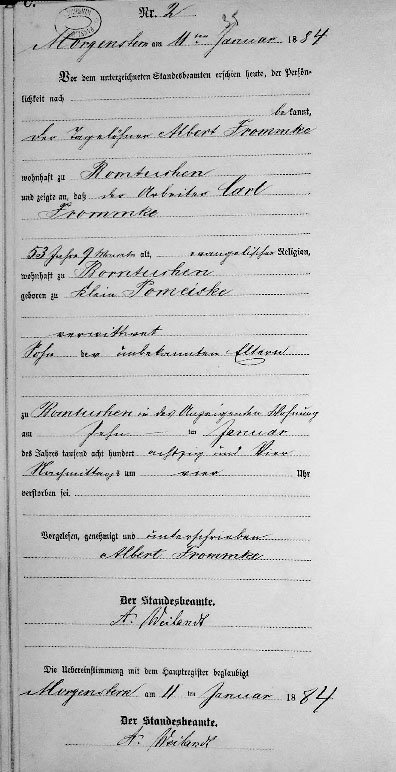 Nr. 2
Morgenstern am 11 ten Januar 1884
Vor dem unterzeichneten Standesbeamten erschien heute, der Persön-
lichkeit nach
bekannt,
der Tagelöhner Albert Frommke
wohnhaft zu Romtushen
und zeigte an, daß der Arbeiter Carl
Frommke
53 Jahre 9 Monate alt, evangelischer Religion,
wohnhaft zu Romtushen
geboren zu Klein Pomeiske
verwittwet
Sohn der unbekannten Eltern
zu Romtushen in des Anzeigenden Wohnung
am Zehn ten Januar
des Jahres tausend acht hundert achtzig und Vier
Nachmittags um vier Uhr
verstorben sei.
Vorgelesen, genehmigt und unterschrieben
Albert Frommke
Der Standesbeamte.
A. Weilandt
Die Uebereinstimmung mit dem Hauptregister beglaubigt
Morgenstern am 11 ten Januar 1884
Der Standesbeamte.
A. Weilandt